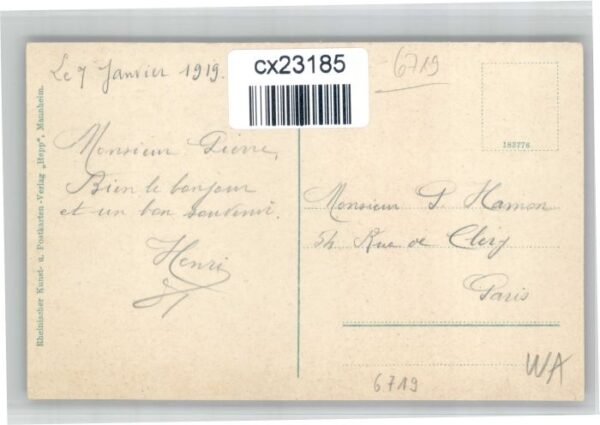 Le 7 Janvier 1919.
cx23185
6719
183776
Monsieur Pierre,
Bien le bonjour
et un bon souvenir.
Henri
Monsieur P. Hamon
54 Rue de Cléry
Paris
6719
WA
Rheinischer Kunst- u. Postkarten-Verlag „Hepp", Mannheim.